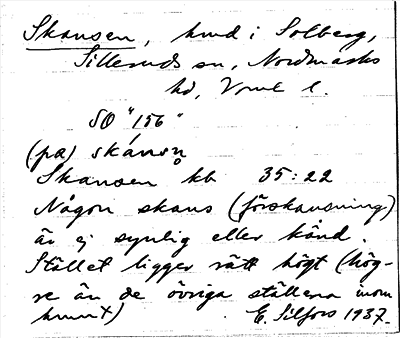 Skansen, hmd i Solberg,
Silleruds sn, Nordmarks
hd, Vrml l.
SO "156"
(pa) skánsn̥
Skansen kb 35:22
Någon skans (förskansning)
är ej synlig eller känd.
Stället ligger rätt högt (hög-
re än de övriga ställena inom
hmnt)
E. Silfors 1937.